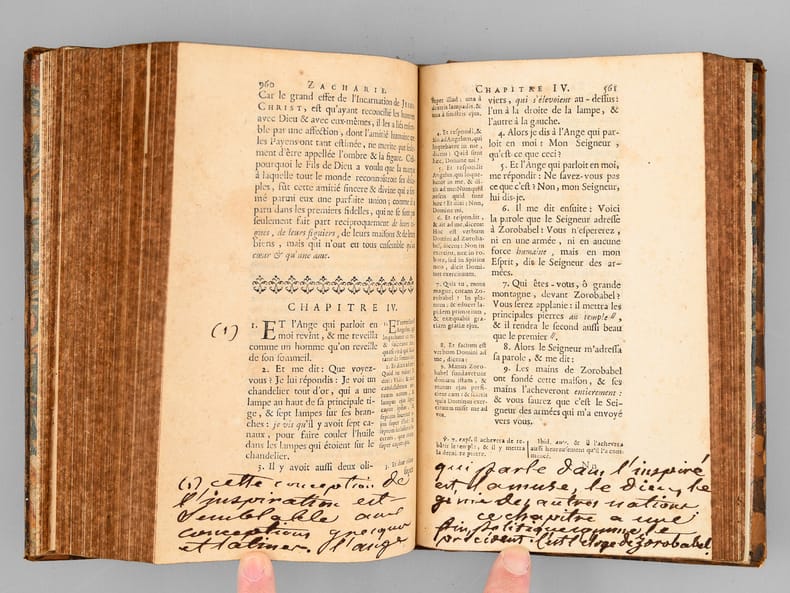 960 ZACHARIE.
Car le grand effet de l'Incarnation de JESUS
CHRIST, est qu'ayant reconcilié les hommes
avec Dieu & avec eux-mêmes, il les a liés ensem-
ble par une affection, dont l'amitié humaine que
les Payens ont tant estimée, ne merite pas seule-
ment d'être appellée l'ombre & la figure. C'est
pourquoi le Fils de Dieu a voulu que la marque
à laquelle tout le monde reconnoîtroit ses disci-
ples, fût cette amitié sincere & divine qui a for-
mé parmi eux une parfaite union; comme il a
paru dans les premiers fidelles, qui ne se sont pas
seulement fait part reciproquement de leurs vi-
gnes, de leurs figuiers, de leurs maisons & de leurs
biens, mais qui n'ont eu tous ensemble qu'un
cœur & qu'une ame.
CHAPITRE IV.
(1)
1. ET l'Ange qui parloit en
moi revint, & me reveilla
comme un homme qu'on reveille
de son sommeil.
2. Et me dit: Que voyez-
vous? Je lui répondis: Je voi un
chandelier tout d'or, qui a une
lampe au haut de sa principale ti-
ge, & sept lampes sur ses bran-
ches: je vis qu'il y avoit sept ca-
naux, pour faire couler l'huile
dans les lampes qui étoient sur le
chandelier.
3. Il y avoit aussi deux oli-
(1) cette conception de
l'inspiration est
semblable aux
conceptions grecques
et latines. l'ange
CHAPITRE IV. 561
super illud: una à
dextris lampadis, &
una à sinistris ejus.
4. Et respondi, &
aio ad Angelum, qui
loquebatur in me,
dicens: Quid sunt
hæc, Domine mi?
5. Et respondit
Angelus, qui loque-
batur in me, & di-
xit ad me: Numquid
nescis quid sunt
hæc? Et dixi: Non,
Domine mi.
6. Et respondit,
& ait ad me, dicens:
Hoc est verbum
Domini ad Zoroba-
bel, dicens: Non in
exercitu, nec in ro-
bore, sed in Spiritu
meo, dicit Domi-
nus exercituum.
7. Quis tu, mons
magne, coram Zo-
robabel? In pla-
num: & educet la-
pidem primarium,
& exæquabit gra-
tiam gratiæ ejus.
8. Et factum est
verbum Domini ad
me, dicens:
9. Manus Zoro-
babel fundaverunt
domum istam, &
manus ejus perfi-
cient eam: & scietis
quia Dominus exer-
cituum misit me ad
vos.
viers, qui s'élevoient au-dessus:
l'un à la droite de la lampe, &
l'autre à la gauche.
4. Alors je dis à l'Ange qui par-
loit en moi: Mon Seigneur,
qu'est-ce que ceci?
5. Et l'Ange qui parloit en moi,
me répondit: Ne savez-vous pas
ce que c'est? Non, mon Seigneur,
lui dis-je.
6. Il me dit ensuite: Voici
la parole que le Seigneur adresse
à Zorobabel: Vous n'espererez,
ni en une armée, ni en aucune
force humaine, mais en mon
Esprit, dit le Seigneur des ar-
mées.
7. Qui êtes-vous, ô grande
montagne, devant Zorobabel?
Vous serez applanie: il mettra les
principales pierres au temple,
& il rendra le second aussi beau
que le premier.
8. Alors le Seigneur m'adressa
sa parole, & me dit:
9. Les mains de Zorobabel
ont fondé cette maison, & ses
mains l'acheveront entierement:
& vous saurez que c'est le Sei-
gneur des armées qui m'a envoyé
vers vous.
℣. 7. expl. il achevera de re-
bâtir le temple; & il y mettra
la derniere
Ibid. autr. & il l'achevera
aussi heureusement qu'il l'a com-
mencé.
qui parle dans l'inspiré
est la muse, le dieu, le
génie des autres nations
ce chapitre a une
fin politique comme le
précédent. C'est l'éloge de Zorobabel.